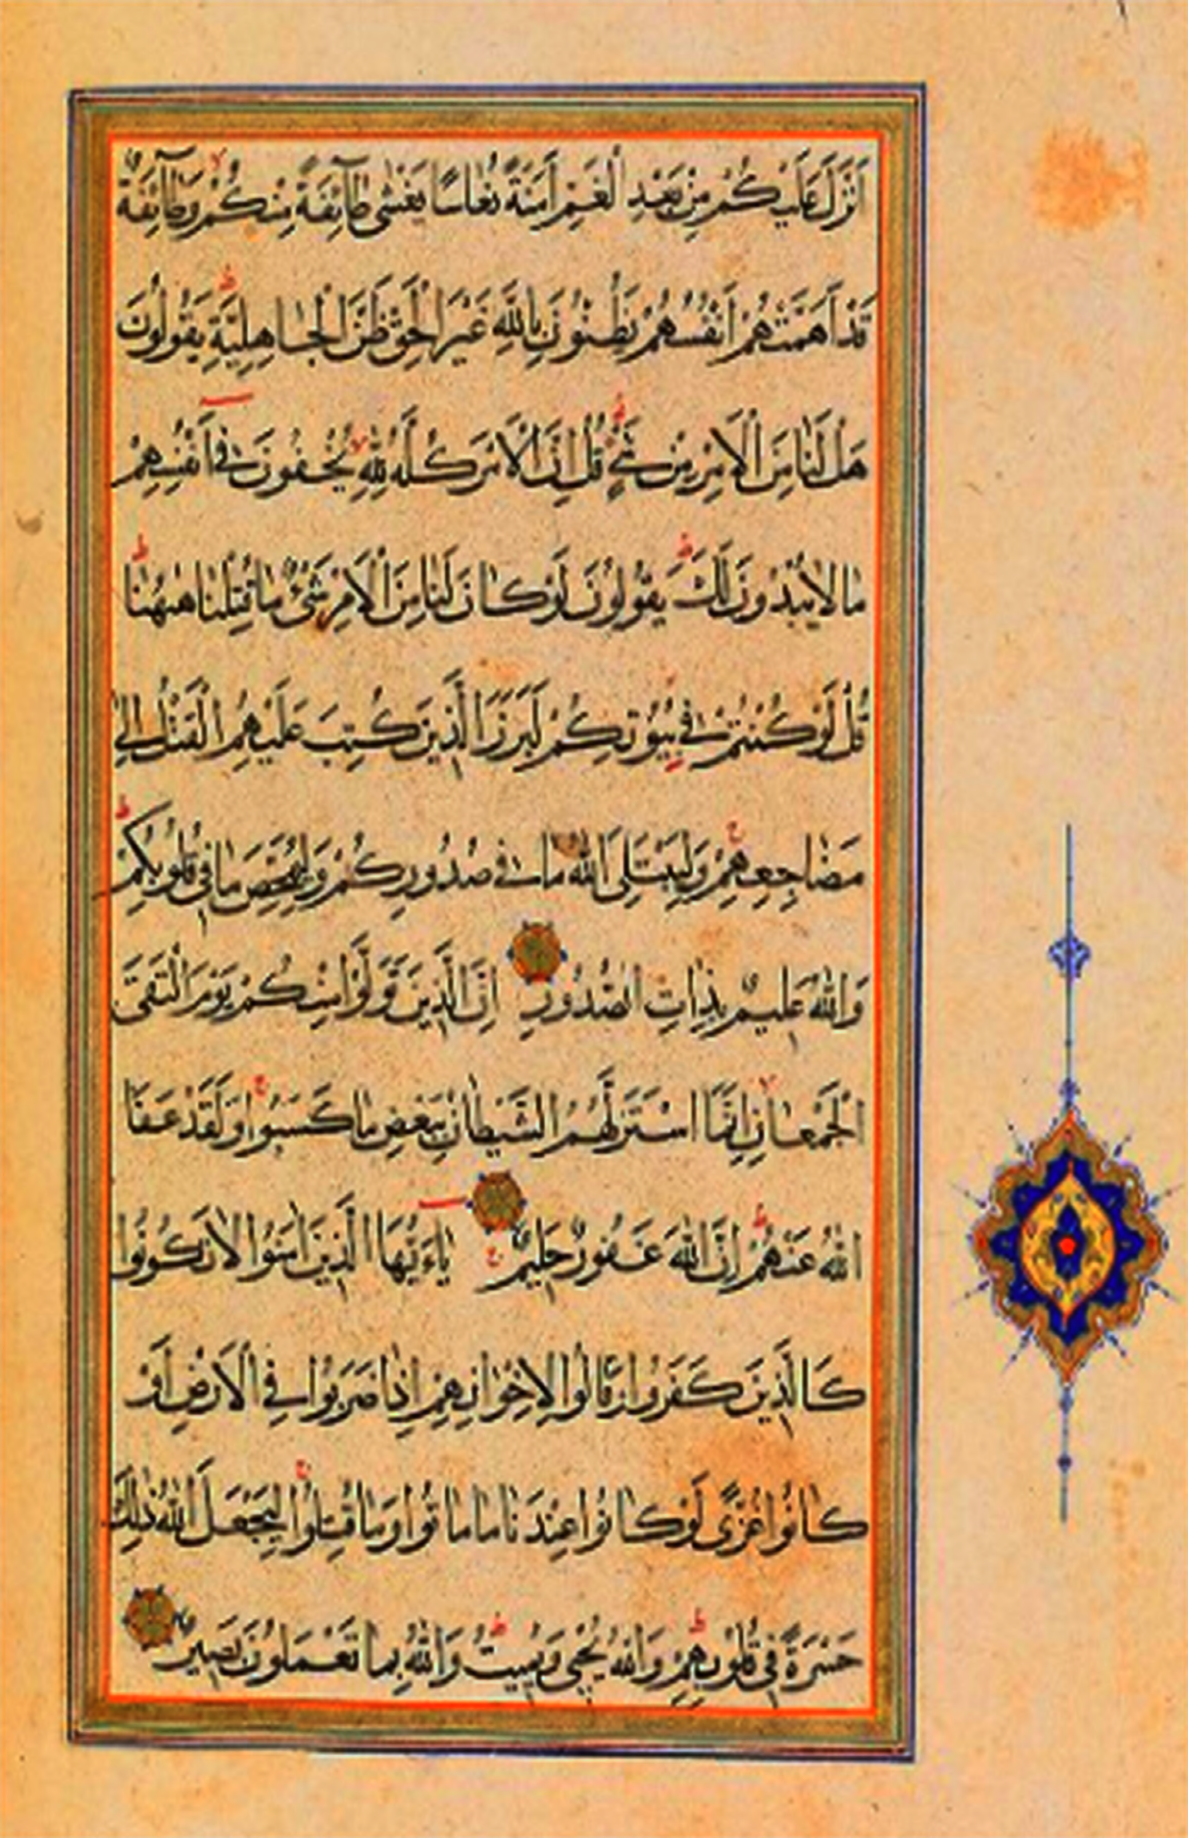 اَنْزَلَ عَلَيْكُمْ مِنْ بَعْدِ الْغَمِّ اَمَنَةً نُعَاسًا يَغْشٰى طَآئِفَةً مِنْكُمْ وَطَآئِفَةٌ
قَدْ اَهَمَّتْهُمْ اَنْفُسُهُمْ يَظُنُّونَ بِاللّٰهِ غَيْرَ الْحَقِّ ظَنَّ الْجَاهِلِيَّةِ يَقُولُونَ
هَلْ لَنَا مِنَ الْاَمْرِ مِنْ شَیْءٍ قُلْ اِنَّ الْاَمْرَ كُلَّهُ لِلّٰهِ يُخْفُونَ فِی اَنْفُسِهِمْ
مَا لَا يُبْدُونَ لَكَ يَقُولُونَ لَوْ كَانَ لَنَا مِنَ الْاَمْرِ شَیْءٌ مَا قُتِلْنَا هٰهُنَا
قُلْ لَوْ كُنْتُمْ فِی بُيُوتِكُمْ لَبَرَزَ الَّذِينَ كُتِبَ عَلَيْهِمُ الْقَتْلُ اِلٰى
مَضَاجِعِهِمْ وَلِيَبْتَلِیَ اللّٰهُ مَا فِی صُدُورِكُمْ وَلِيُمَحِّصَ مَا فِی قُلُوبِكُمْ
وَاللّٰهُ عَلِيمٌ بِذَاتِ الصُّدُورِ اِنَّ الَّذِينَ تَوَلَّوْا مِنْكُمْ يَوْمَ الْتَقَى
الْجَمْعَانِ اِنَّمَا اسْتَزَلَّهُمُ الشَّيْطَانُ بِبَعْضِ مَا كَسَبُوا وَلَقَدْ عَفَا
اللّٰهُ عَنْهُمْ اِنَّ اللّٰهَ غَفُورٌ حَلِيمٌ يَاءَيُّهَا الَّذِينَ اٰمَنُوا لَا تَكُونُوا
كَالَّذِينَ كَفَرُوا وَقَالُوا لِاِخْوَانِهِمْ اِذَا ضَرَبُوا فِی الْاَرْضِ اَوْ
كَانُوا غُزًّى لَوْ كَانُوا عِنْدَنَا مَا مَاتُوا وَمَا قُتِلُوا لِيَجْعَلَ اللّٰهُ ذٰلِكَ
حَسْرَةً فِی قُلُوبِهِمْ وَاللّٰهُ يُحْيِی وَيُمِيتُ وَاللّٰهُ بِمَا تَعْمَلُونَ بَصِيرٌ